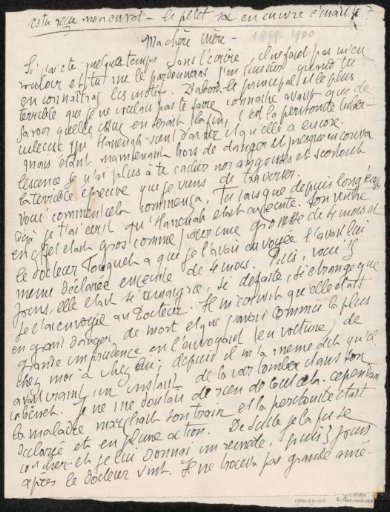 as tu reçu mon envoi - le petit en cuivre émaillé ?
Ma chère Mère - 1899-1900
Si j'ai été quelque temps sans t'écrire, il ne faut pas m'en
vouloir et tu me le pardonneras j'en suis sûr quand tu
en connaîtras les motifs. D'abord le principal et le plus
terrible que je ne voulais pas te faire connaître avant que de
savoir quelle en serait la fin, c'est la péritonite tuber-
culeuse que Hanenah vient d'avoir et qu'elle a encore.
mais étant maintenant hors de danger et presque en conva
lescence je n'ai plus à te cacher nos angoisses et
la terrible épreuve que je viens de traverser.
Voici comment cela commença. Tu sais que depuis longtemps
déjà je t'ai écrit que Hanenah était enceinte. Son ventre
en effet était gros comme pour une grossesse de 4 mois et
le docteur à que je l'avais envoyée l'avait lui
même déclarée enceinte de 4 mois. Puis, voici
jours, elle était si
je l'ai envoyée au Docteur. Il m'écrivit qu'elle était
en grand danger de mort et que j'avais commis la plus
grande imprudence en l'envoyant (en voiture) de
chez moi à chez lui; depuis il m'a même dit qu'il
avait craint un instant de la voir tomber dans son
cabinet. Je ne me doutais de rien de tout cela. cependant
la maladie marchait son train et la péritonite était
déclarée et en pleine action. De suite je la fis se
coucher et je lui donnai un remède. Puis 3 jours
après le Docteur vint. Il ne trouva pas grande amé-